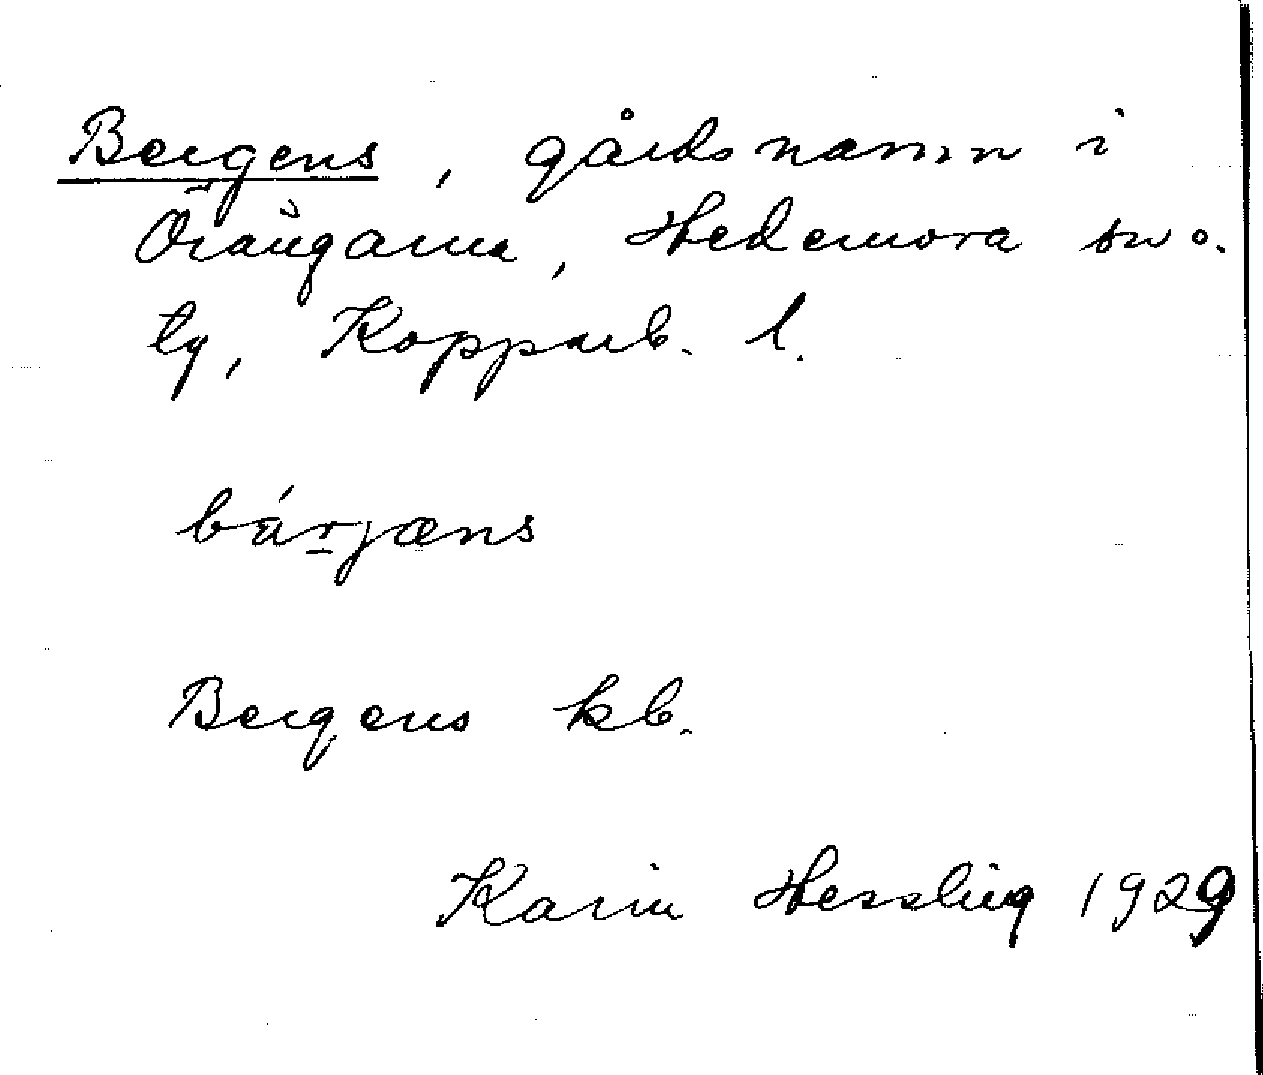 Bergens, gårdsnamn i
Örängarna, Hedemora sn o.
tg, Kopparb. l.
bä́rjæns
Bergens kb.
Karin Hessling 1929